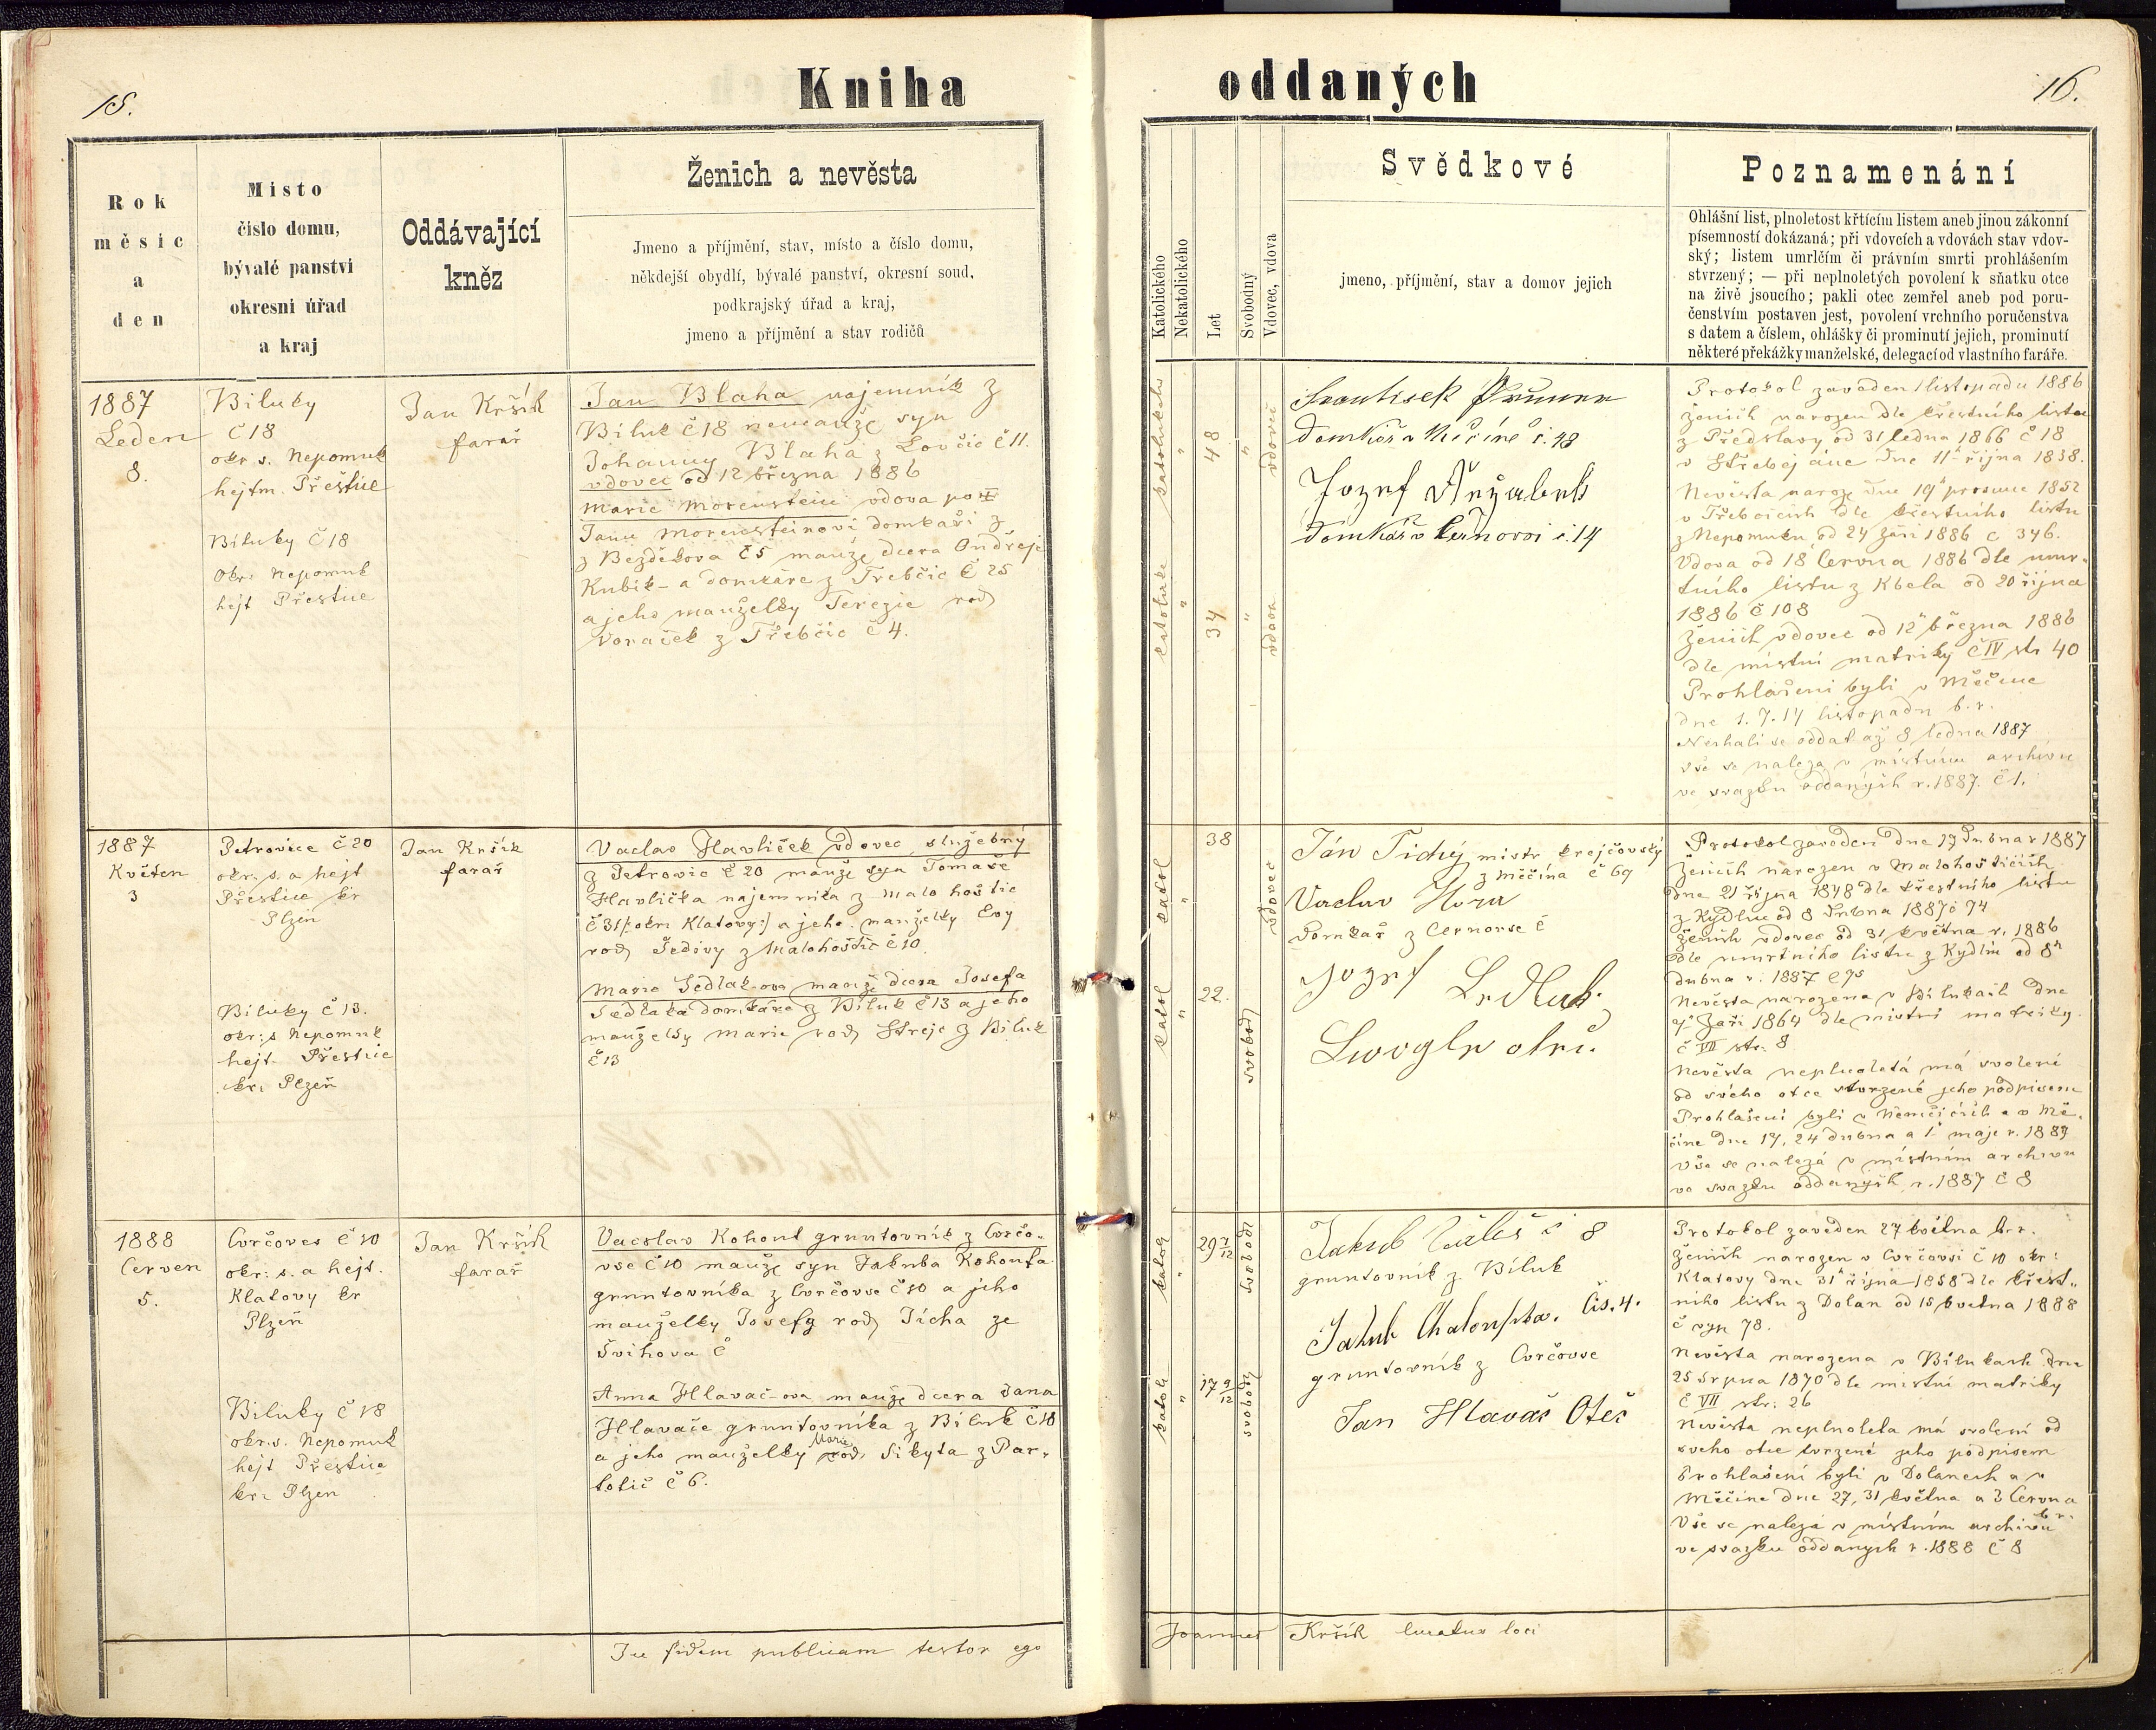 15.
Kniha
oddaných
16.
Rok
měsíc
a
den
Místo
číslo domu,
bývalé panství
okresní úřad
a kraj
Oddávající
kněz
Ženich a nevěsta
Jmeno a příjmění, stav, místo a číslo domu,
někdejší obydlí, bývalé panství, okresní soud,
podkrajský úřad a kraj,
jmeno a příjmění a stav rodičů
Katolického
Nekatolického
Let
Svobodný
Vdovec, vdova
Svědkové
jmeno, příjmění, stav a domov jejich
Poznamenání
Ohlášní list, plnoletost křtícím listem aneb jinou zákonní
písemností dokázaná; při vdovcích a vdovách stav vdov-
ský; listem umrlčím či právním smrti prohlášením
stvrzený; — při neplnoletých povolení k sňatku otce
na živě jsoucího; pakli otec zemřel aneb pod poru-
čenstvím postaven jest, povolení vrchního poručenstva
s datem a číslem, ohlášky či prominutí jejich, prominutí
některé překážky manželské, delegací od vlastního faráře.
1887
Leden
8.
Biluky
č 18
okr s. Nepomuk
hejtm. Přestice
Biluky č 18
Okr: Nepomuk
hejt Přestice
Jan Kršík
farář
Jan Blaha najemník z
Biluk č 18 nemanže syn
Johanny Blaha z Lovčic č 11.
vdovec od 12 března 1886
Marie Morenstein vdova po
Janu Morensteinovi domkaři z
z Bezděkova č 5 manže dcera Ondřeje
Kubík- a domkáre z Trebčic č 25
a jeho manželky Terezie rod
Voraček z Třebčic č 4.
katolického
"
48
"
vdovec
katolicke
"
34
"
vdova
Frantisek
domkář v Měčíně č. 48
Jozef Řežabek
domkář v Černovsi č. 14
Protokol zaveden 1 listopadu 1886
ženich narozen dle křestního listu
z Předslavy od 31 ledna 1866 č 18
v dne 11 října 1838.
Nevěsta naroze dne 19 prosince 1852
v Třebcicich dle křestního listu
z Nepomuku od 24 Září 1886 č 346.
Vdova od 18 Června 1886 dle umr-
tního listu z Kbela od 20 října
1886 č 108
Ženich vdovec od 12 března 1886
dle mistni matriky č IV str 40
Prohlašeni byli v Měčíne
dne 1. 7. 14 listopadu b.r.
Nechali se oddat až 8 ledna 1887
vše se naleza v místním archivu
ve svazku oddaných r. 1887. č 1.
1887
Květen
3
Petrovice č 20
okr. s. a hejt
Přestice kr
Plzeň
Biluky č 13.
okr: s Nepomuk
hejt. Přestice
kr. Plzeň
Jan Kršík
farář
Vaclav Havlíček vdovec, služebný
z Petrovic č 20 manže syn Tomaše
Havlička najemníka z Malo hoštic
č 31 /: okr: Klatovy :/ a jeho manželky Evy
rod Šedivy z Malohoštic č 10.
Marie Sedlak-ova manže dcera Josefa
Sedlaka domkáre z Biluk č 13 a jeho
manželky Marie rod Strejc z Biluk
č 13
katol
"
38
vdovec
katol
"
22.
svobod
Ján Tichý mistr krejčovský
z Měčína č 69
Vaclav Hora
Domkař z Cernovse č
Jozef Sedlak
Protokol zaveden dne 17 Dubna r 1887
Ženich narozen v Malohoštičích
dne 21 října 1848 dle křestního listu
z Kydlin od 8 Dubna 1887 č 74
ženich vdovec od 31 května r. 1886
dle umrtního listu z Kydlin od 8
dubna r. 1887 č 75
Nevěsta narozena v Bilukach dne
Zaři 1864 dle mistní matriky
č VII str. 8
Nevěsta neplnoletá má svolení
od svého otce stvrzené jeho podpisem
Prohlašeni byli v Němčicích a v Mě-
číne dne 17, 24 dubna a 1 maje r. 1887
vše se nalezá v místním archivu
ve svazku oddaných r. 1887 č 8
1888
Červen
5.
Cvrčoves č 10
okr: s. a hejt.
Klatovy kr
Plzeň
Biluky č 18
okr. s. Nepomuk
hejt Přestice
kr. Plzen
Jan Kršík
farář
Vacslav Kohout gruntovník z Cvrčo-
vse č 10 manže syn Jakuba Kohouta
gruntovníka z Cvrčovse č 10 a jeho
manželky Josefy rod Ticha ze
Švihova č
Anna Hlavač-ova manže dcera Jana
Hlavače gruntovníka z Biluk č 18
a jeho manželky Marie rod. Sikyta z Par-
totic č 6.
katol
"
29 7/12
svobod
katol
"
17 9/12
svobod
Jakub č 8
gruntovník z Biluk
Jakub Chaloupka. Čís. 4.
gruntovník z Cvrčovse
Jan Hlavač Oteč
Protokol zaveden 27 května b.r.
Ženich narozen v Cvrčovsi č 10 okr:
Klatovy dne 31 října 1858 dle křest-
niho listu z Dolan od 15 května 1888
č 78.
Nevěsta narozena v Bilukach dne
25 Srpna 1870 dle mistni matriky
č VII str. 26
Nevěsta neplnoleta má svolení od
sveho otce tvrzené jeho podpisem
Prohlašeni byli v Dolanech a v
Měčíne dne 27, 31 května a 3 Cervna
b r.
Vše se nalezá v místním archivu
ve svazku oddanych r. 1888 č 8
In fidem publicam testor ego
Joannes Kršík curatus loci